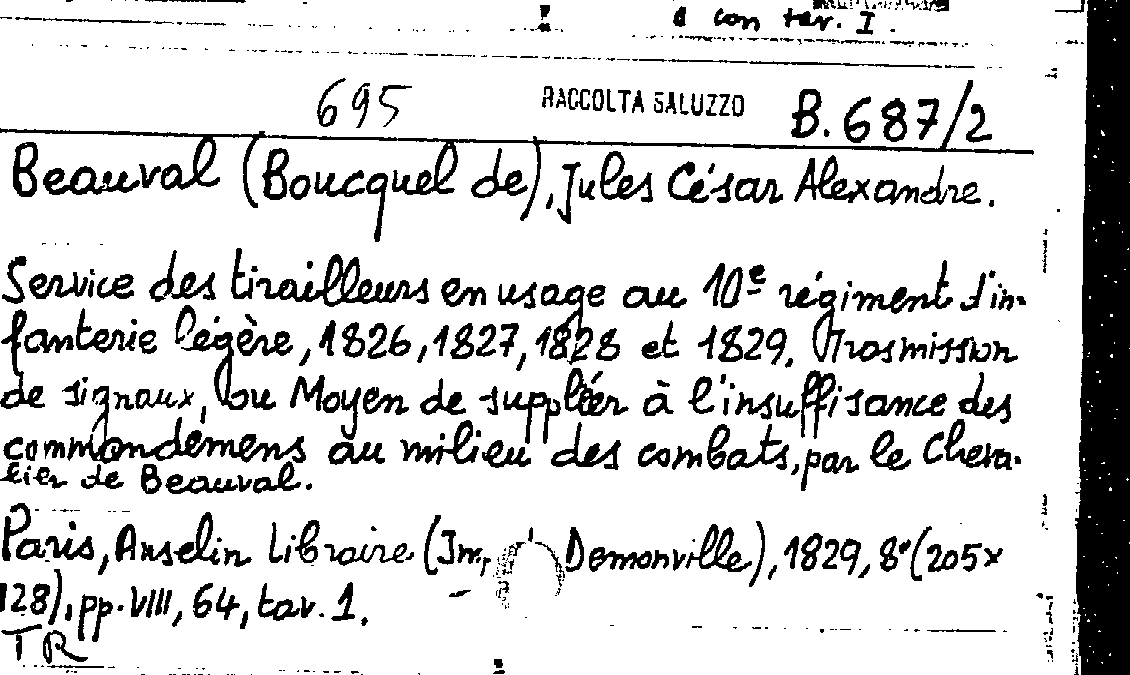 e con tav. I.
695 RACCOLTA SALUZZO B.687/2
Beauval (Boucquel de), Jules César Alexandre.
Service des tirailleurs en usage au 10e régiment d'in-
fanterie légère, 1826, 1827, 1828 et 1829. Trosmission
de signaux, ou Moyen de suppléer à l'insuffisance des
commandemens au milieu des combats, par le Cheva-
lier de Beauval.
Paris, Anselin Libraire (Imp. Demonville), 1829, 8° (205x
128), pp. VIII, 64, tav. 1.
TR